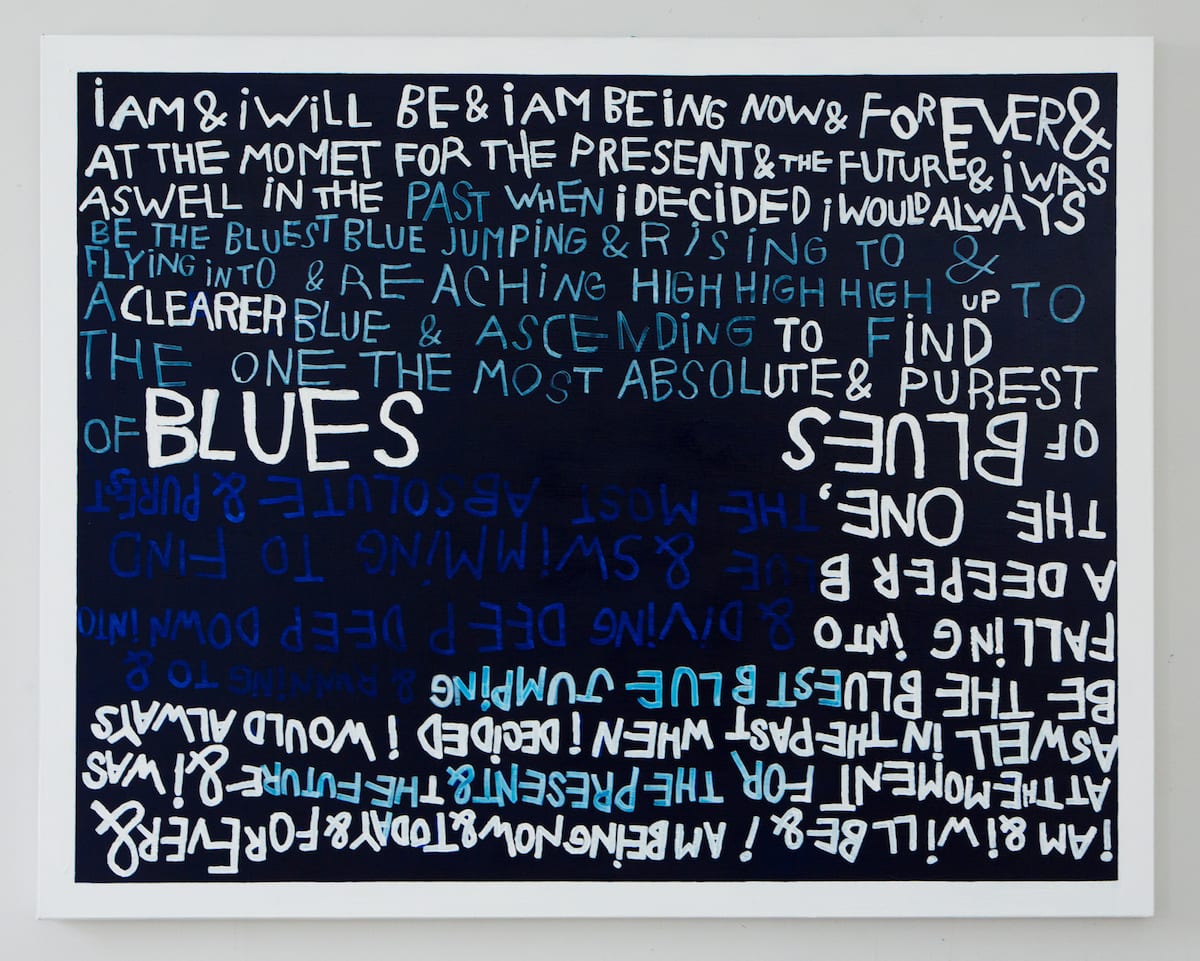 iAM & iWiLL BE & iAM BEiNG NOW & FOREVER &
AT THE MOMET FOR THE PRESENT & THE FUTURE & iWAS
ASWELL IN THE PAST WHEN iDECiDED iWOULD ALWAYS
BE THE BLUEST BLUE JUMPiNG & RiSING TO &
FLYiNG iNTO & REACHiNG HIGH HIGH HIGH UP TO
A CLEARER BLUE & ASCENDiNG TO FiND
THE ONE THE MOST ABSOLUTE & PUREST
OF BLUES
i AM & i WiLL BE & i AM BEiNG NOW & TODAY & FOREVER &
AT THE MOMENT FOR THE PRESENT & THE FUTURE & i WAS
ASWELL iN THE PAST WHEN i DECiDED i WOULD ALWAYS
BE THE BLUEST BLUE JUMPiNG & RUNNiNG TO &
FALLiNG iNTO & DiViNG DEEP DEEP DOWN iNTO
A DEEPER BLUE & SWiMMiNG TO FIND
THE ONE, THE MOST ABSOLUTE & PUREST
OF BLUES